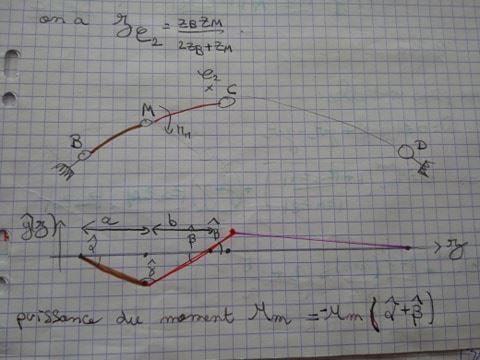 on a z_{e_2} = \frac{z_B z_M}{2z_B + z_M}
e_2
C
M
B
n_n
D
ŷ(z)
a
b
β̂
α̂
β̂
γ̂
z
puissance du moment M_m = -M_m (α̂ + β̂)